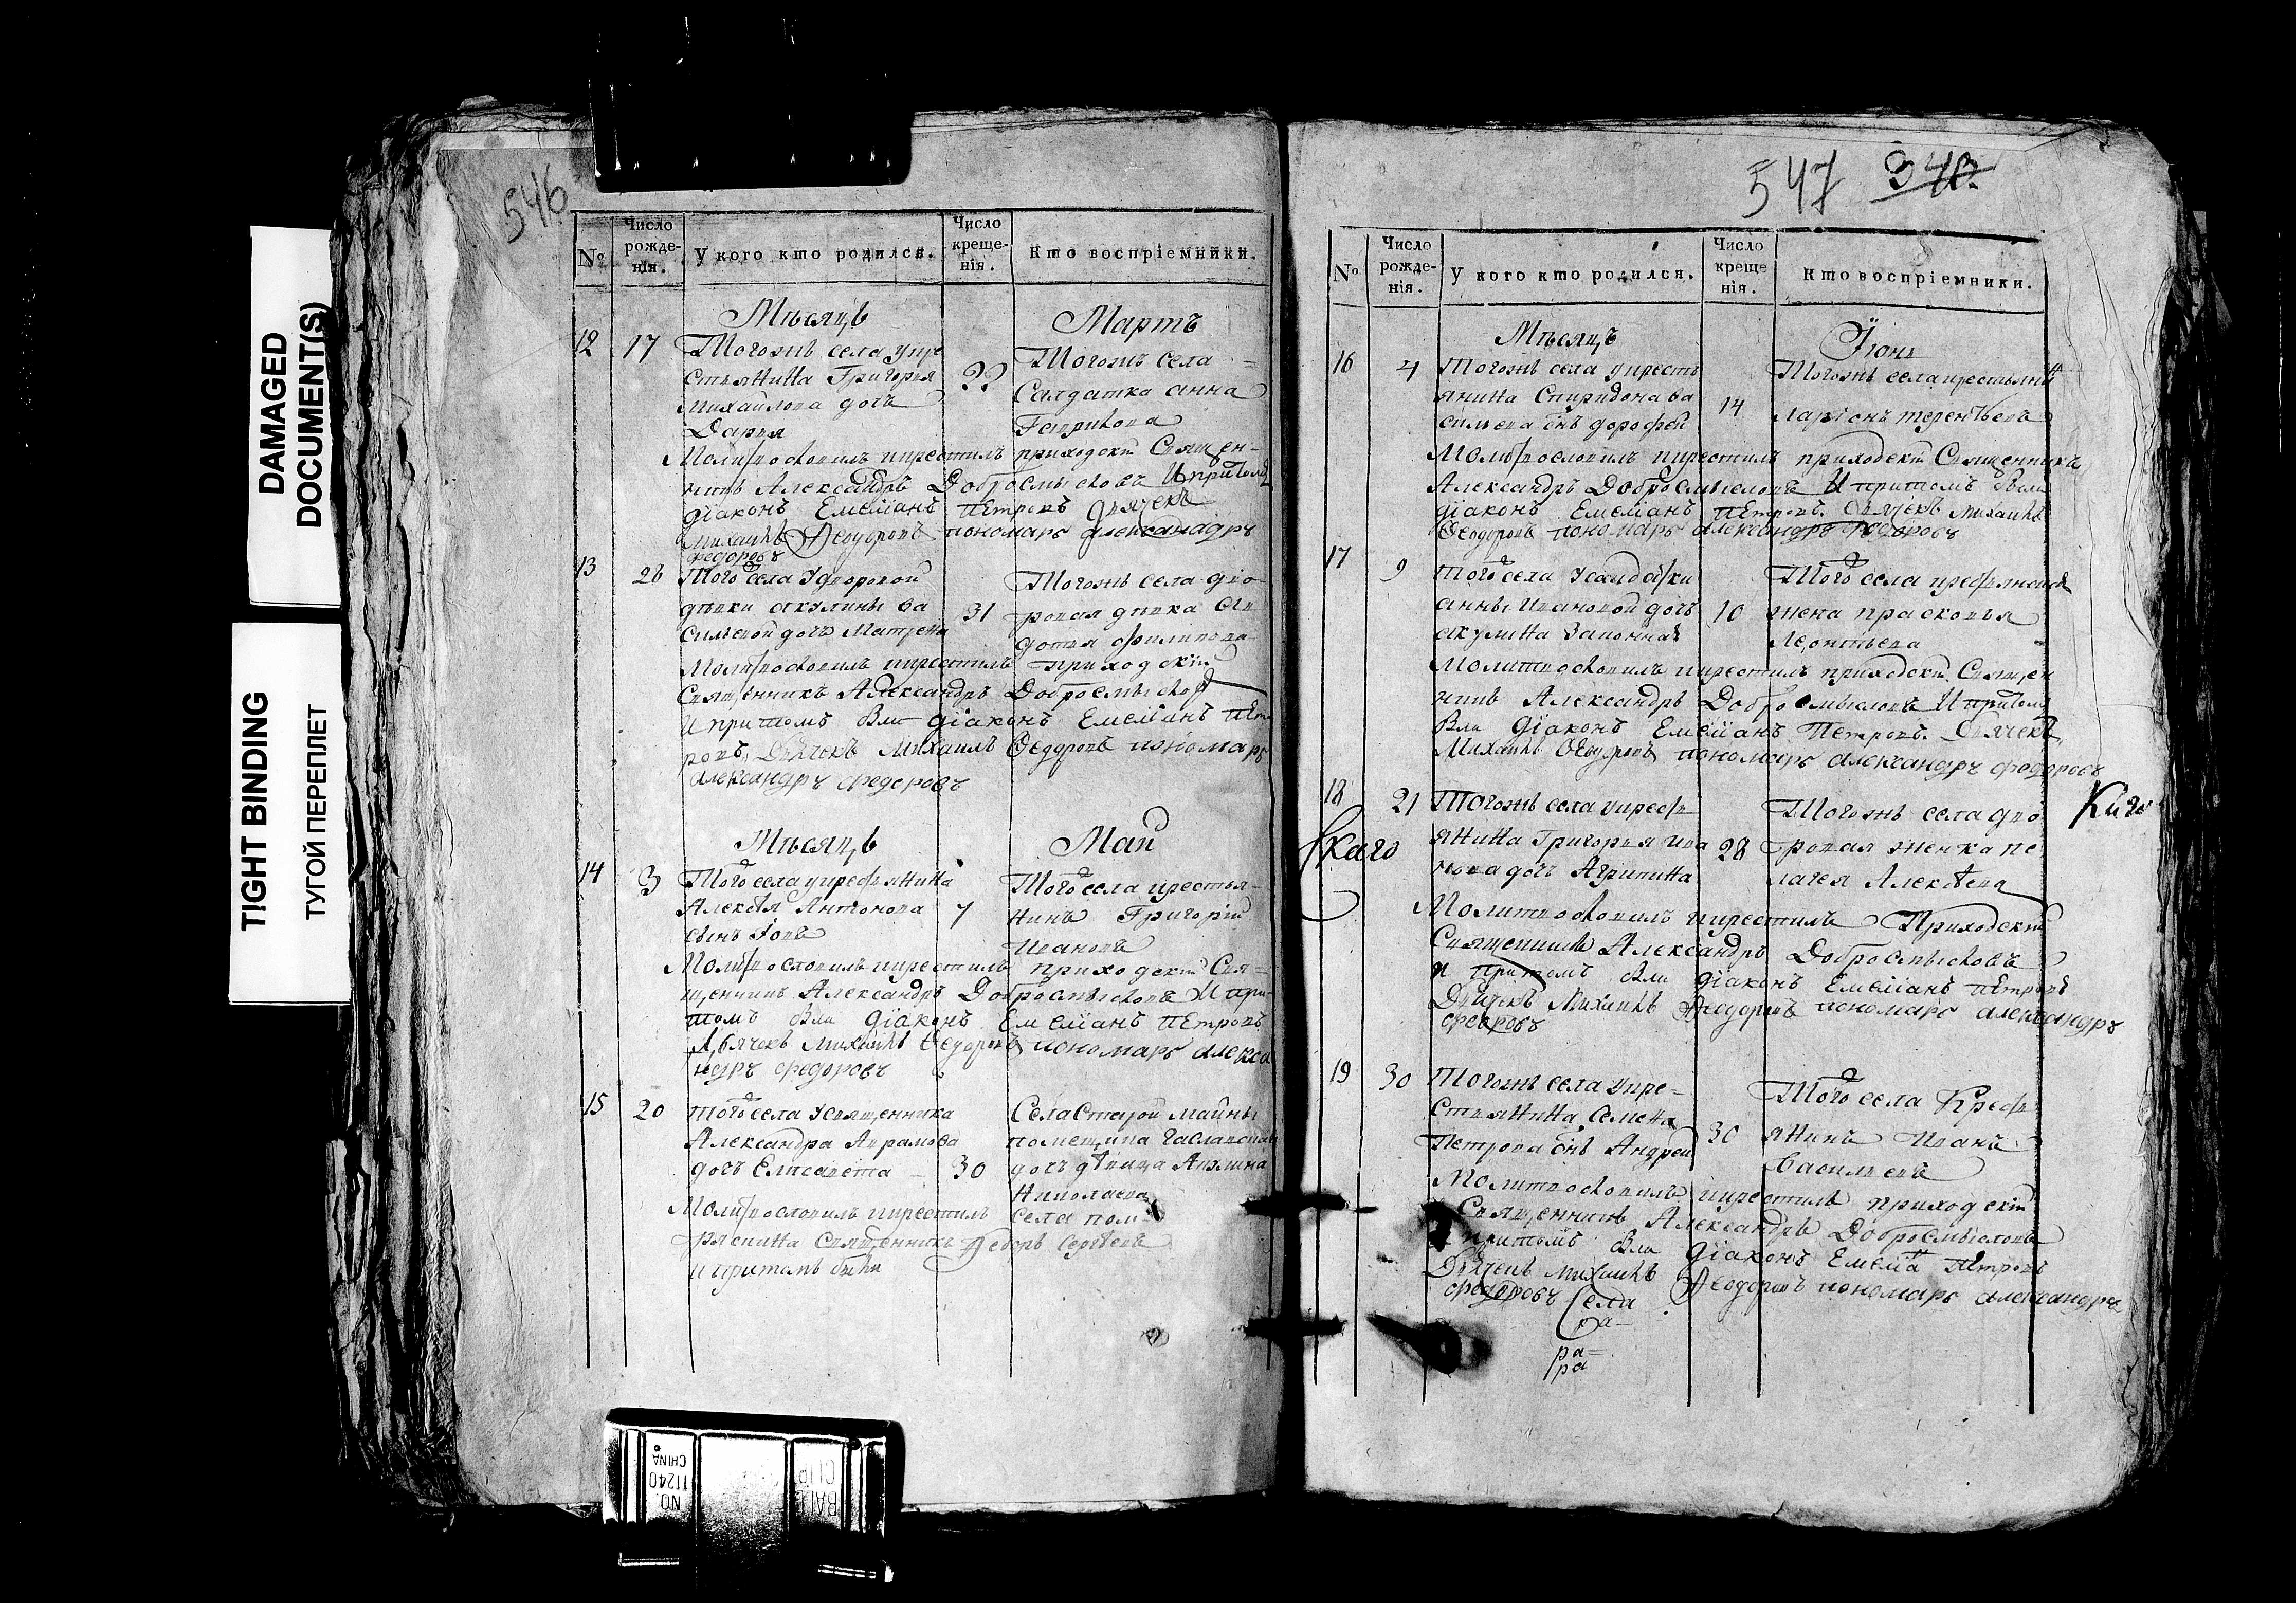 DAMAGED
DOCUMENT(S)
TIGHT BINDING
ТУГОЙ ПЕРЕПЛЕТ
546
№ Число рожде-нія. У кого кто родился. Число креще-нія. Кто воспріемники.
Мѣсяцъ Мартъ
12 17 Тогожъ села укре
стьянина Григорья
Михайлова дочь
Дарья
22 Тогожъ села
Салдатка анна
Гаврилова
Молитвословилъ икрестилъ приходскій Священ-
никъ Александръ Добросмысловъ Ипритомъ
діаконъ Емеліанъ Петровъ Дьячекъ
Михаилъ Ѳеодоровъ пономарь александръ
федоровъ
13 28 Того села Удворовой
дѣвки акулины ва
сильевой дочь Матрена
31 Тогожъ села дво
ровая дѣвка
дотья филипова
Молитвословилъ икрестилъ приходскій
Священникъ Александръ Добросмысловъ
Ипритомъ были діаконъ Емеліанъ Пет
ровъ, Дьячекъ Михаилъ Ѳеодоровъ пономарь
александръ федоровъ
Мѣсяцъ Май
14 3 Того села укрестьянина
Алексѣя Антонова
сынъ Іовъ
7 Того села крестья-
нинъ Григорій
Ивановъ
Молитвословилъ икрестилъ приходскій Свя-
щенникъ Александръ Добросмысловъ Ипри-
томъ были діаконъ Емеліанъ Петровъ
Дьячекъ Михаилъ Ѳеодоровъ пономарь алекса
ндръ федоровъ
15 20 Того села Усвященника
Александра Аврамова
дочь Елисавета
30 Села Старой майны
помещика
дочь дѣвица
Николаева
Молитвословилъ икрестилъ села пом-
ряскина Священникъ Ѳедоръ Сергѣевъ
ипритомъ были
547 343.
№ Число рожде-нія. У кого кто родился. Число креще нія. Кто воспріемники.
Мѣсяцъ Іюнь
16 4 Тогожъ села укресть
янина Спиридона ва
сильева снъ дорофей
14 Тогожъ села крестьянинъ
ларіонъ терентьевъ
Молитвословилъ икрестилъ приходскій Священникъ
Александръ Добросмысловъ Ипритомъ были
діаконъ Емеліанъ Петровъ. Дьячекъ Михаилъ
Ѳеодоровъ пономарь александръ федоровъ
17 9 Того села Усалдатки
анны Ивановой дочь
акулина Законная
10 Того села крестьянская
жена прасковья
Леонтьева
Молитвословилъ икрестилъ приходскій Священ
никъ Александръ Добросмысловъ Ипритомъ
были діаконъ Емеліанъ Петровъ. Дьячекъ
Михаилъ Ѳеодоровъ пономарь александръ федоровъ
18 21 Тогожъ села укресть
янина Григорья ива
нова дочь Агрипина
28 Тогожъ села дво
ровая женка пе
лагея Алексѣева
Молитвословилъ икрестилъ Приходскій
Священникъ Александръ Добросмысловъ
и притомъ были діаконъ Емеліанъ Петровъ
Дьячекъ Михаилъ Ѳеодоровъ пономарь александръ
федоровъ
19 30 Тогожъ села укре-
стьянина Семена
Петрова снъ Андрей
30 Того села Кресть
янинъ Иванъ
Васильевъ
Молитвословилъ икрестилъ приходскій
Священникъ Александръ Добросмысловъ
и притомъ были діаконъ Емеліанъ Петровъ
Дьячекъ Михаилъ Ѳеодоровъ пономарь александръ
федоровъ
Села
ра-
ра
NO. 11240
CHINA